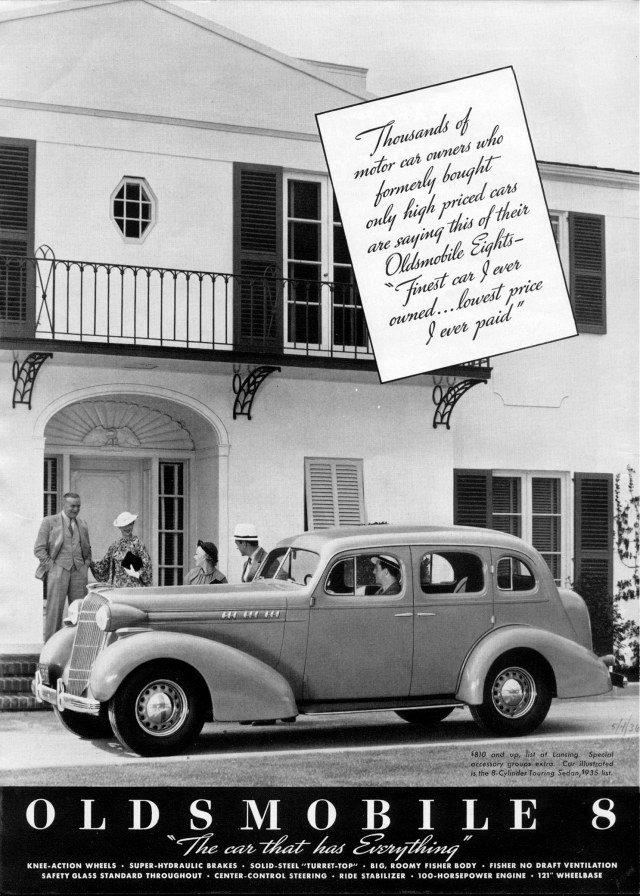 Thousands of
motor car owners who
formerly bought
only high priced cars
are saying this of their
Oldsmobile Eights—
"Finest car I ever
owned...lowest price
I ever paid"
$810 and up, list at Lansing. Special
accessory groups extra. Car illustrated
is the 8-Cylinder Touring Sedan, $935 list.
OLDSMOBILE 8
"The car that has Everything"
KNEE-ACTION WHEELS • SUPER-HYDRAULIC BRAKES • SOLID-STEEL "TURRET-TOP" • BIG, ROOMY FISHER BODY • FISHER NO DRAFT VENTILATION
SAFETY GLASS STANDARD THROUGHOUT • CENTER-CONTROL STEERING • RIDE STABILIZER • 100-HORSEPOWER ENGINE • 121" WHEELBASE